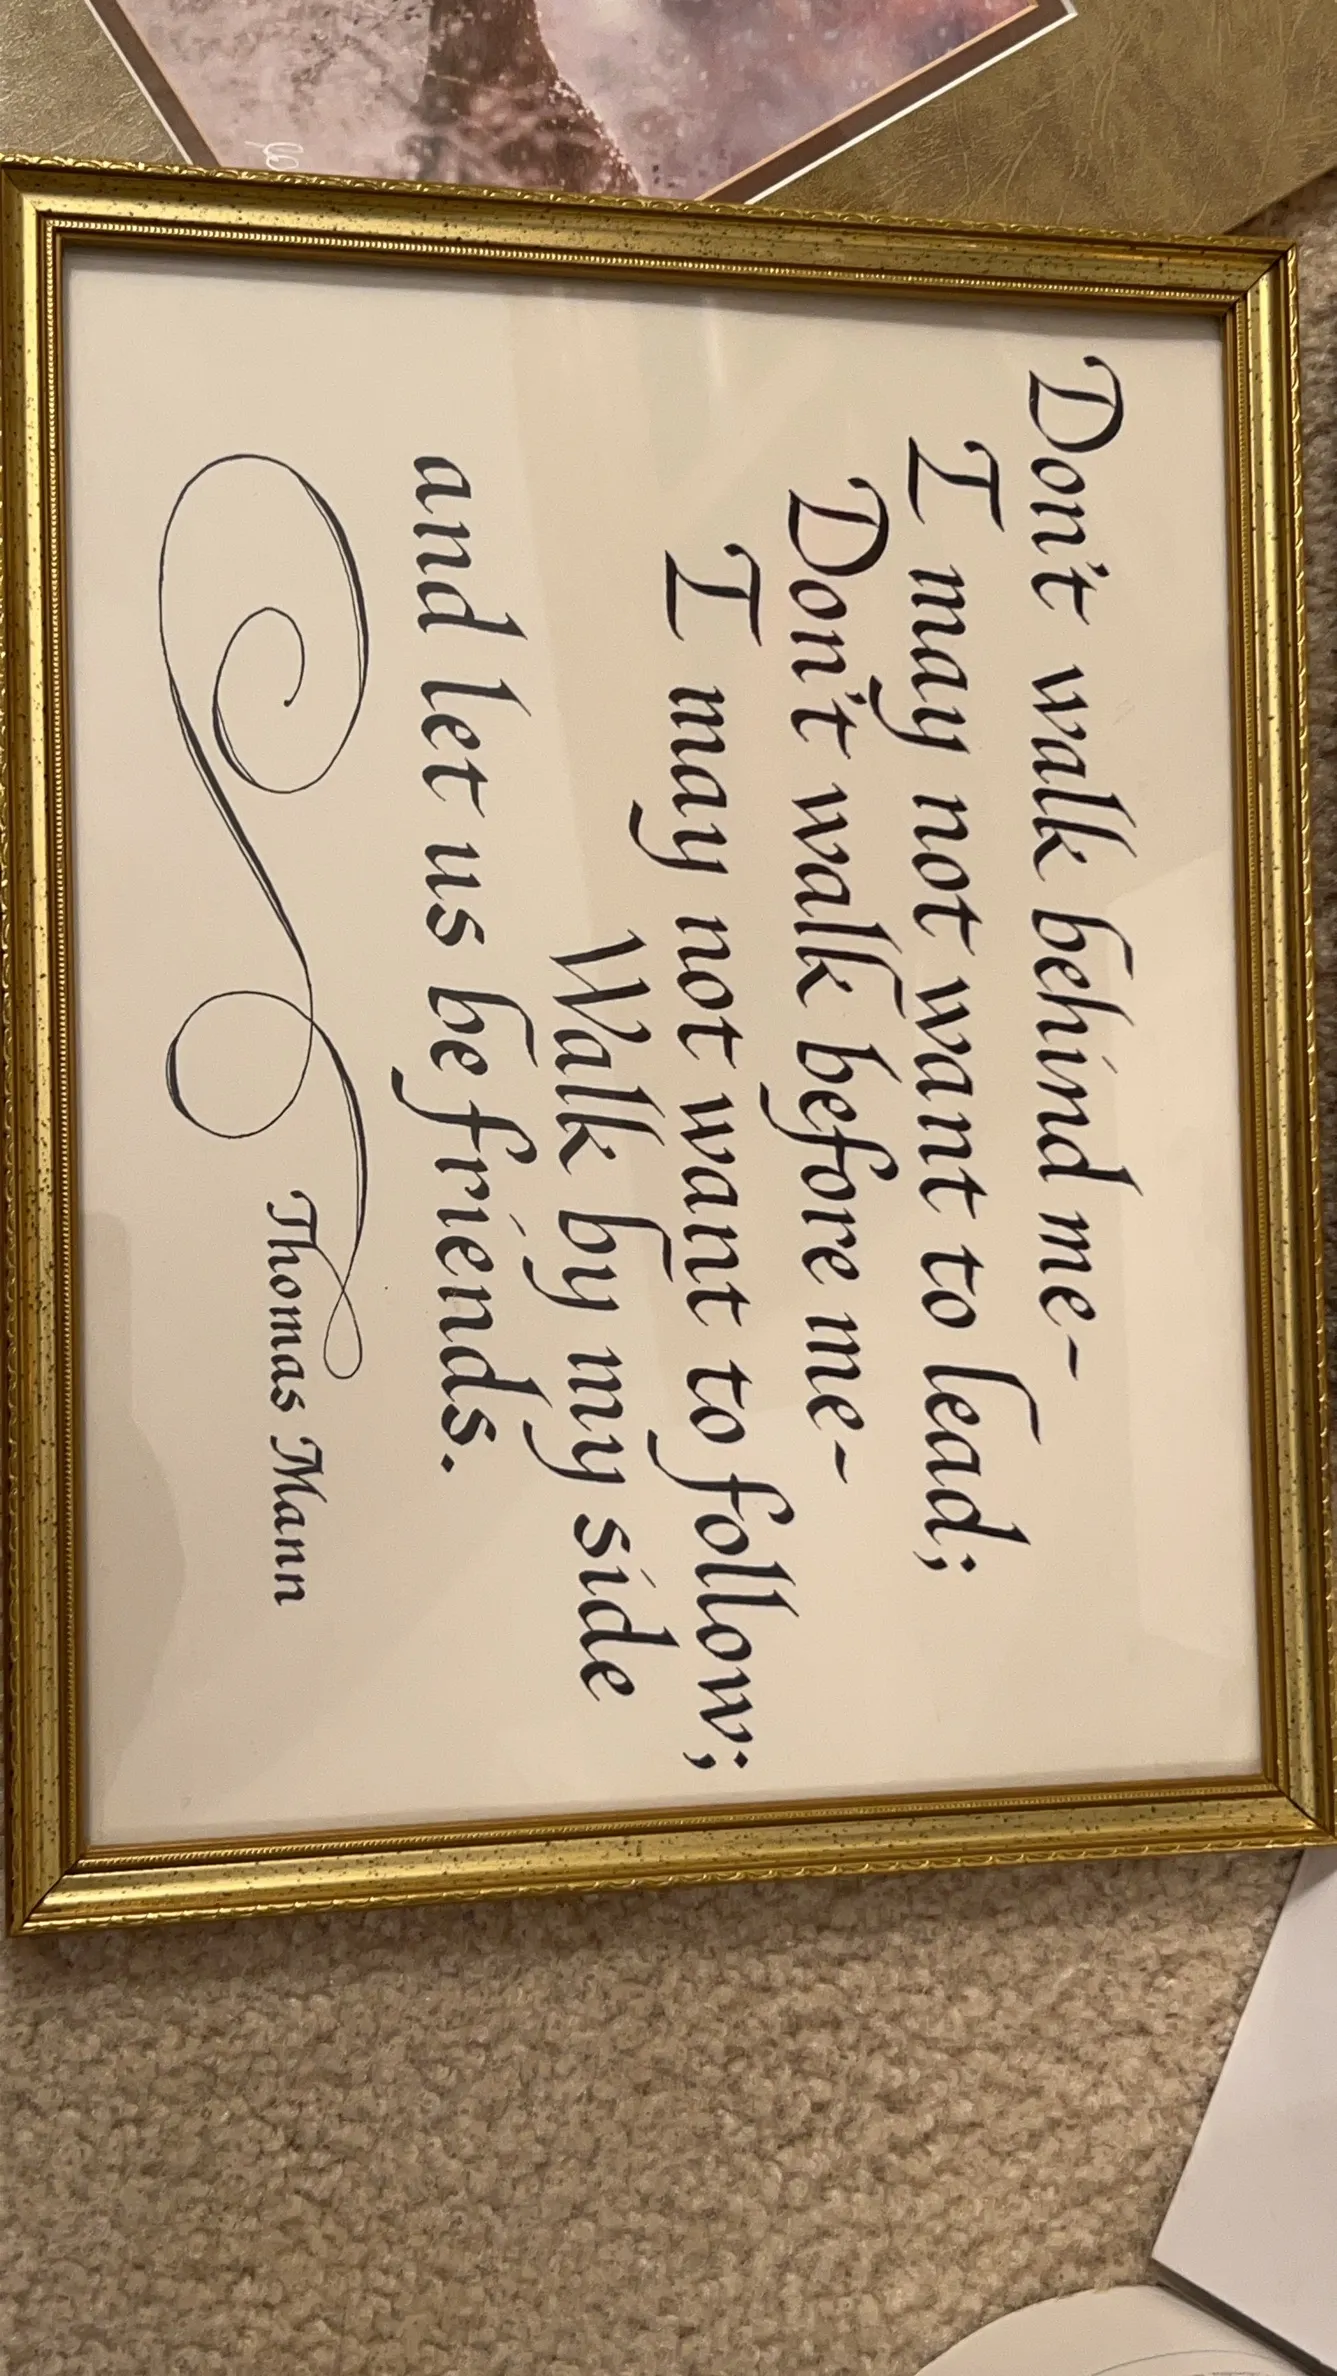 Don't walk behind me-
I may not want to lead;
Don't walk before me-
I may not want to follow;
Walk by my side
and let us be friends.
Thomas Mann